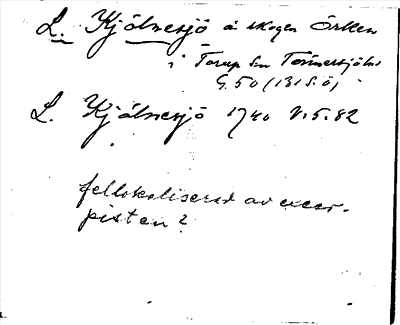 L. Kjölnesjö å skogen Örken
i Torup sn Tönnersjö hd
G. 50 (131 S.Ö)
L. Kjölnesjö 1740 V.5.82
fellokaliserad av excer-
pisten?